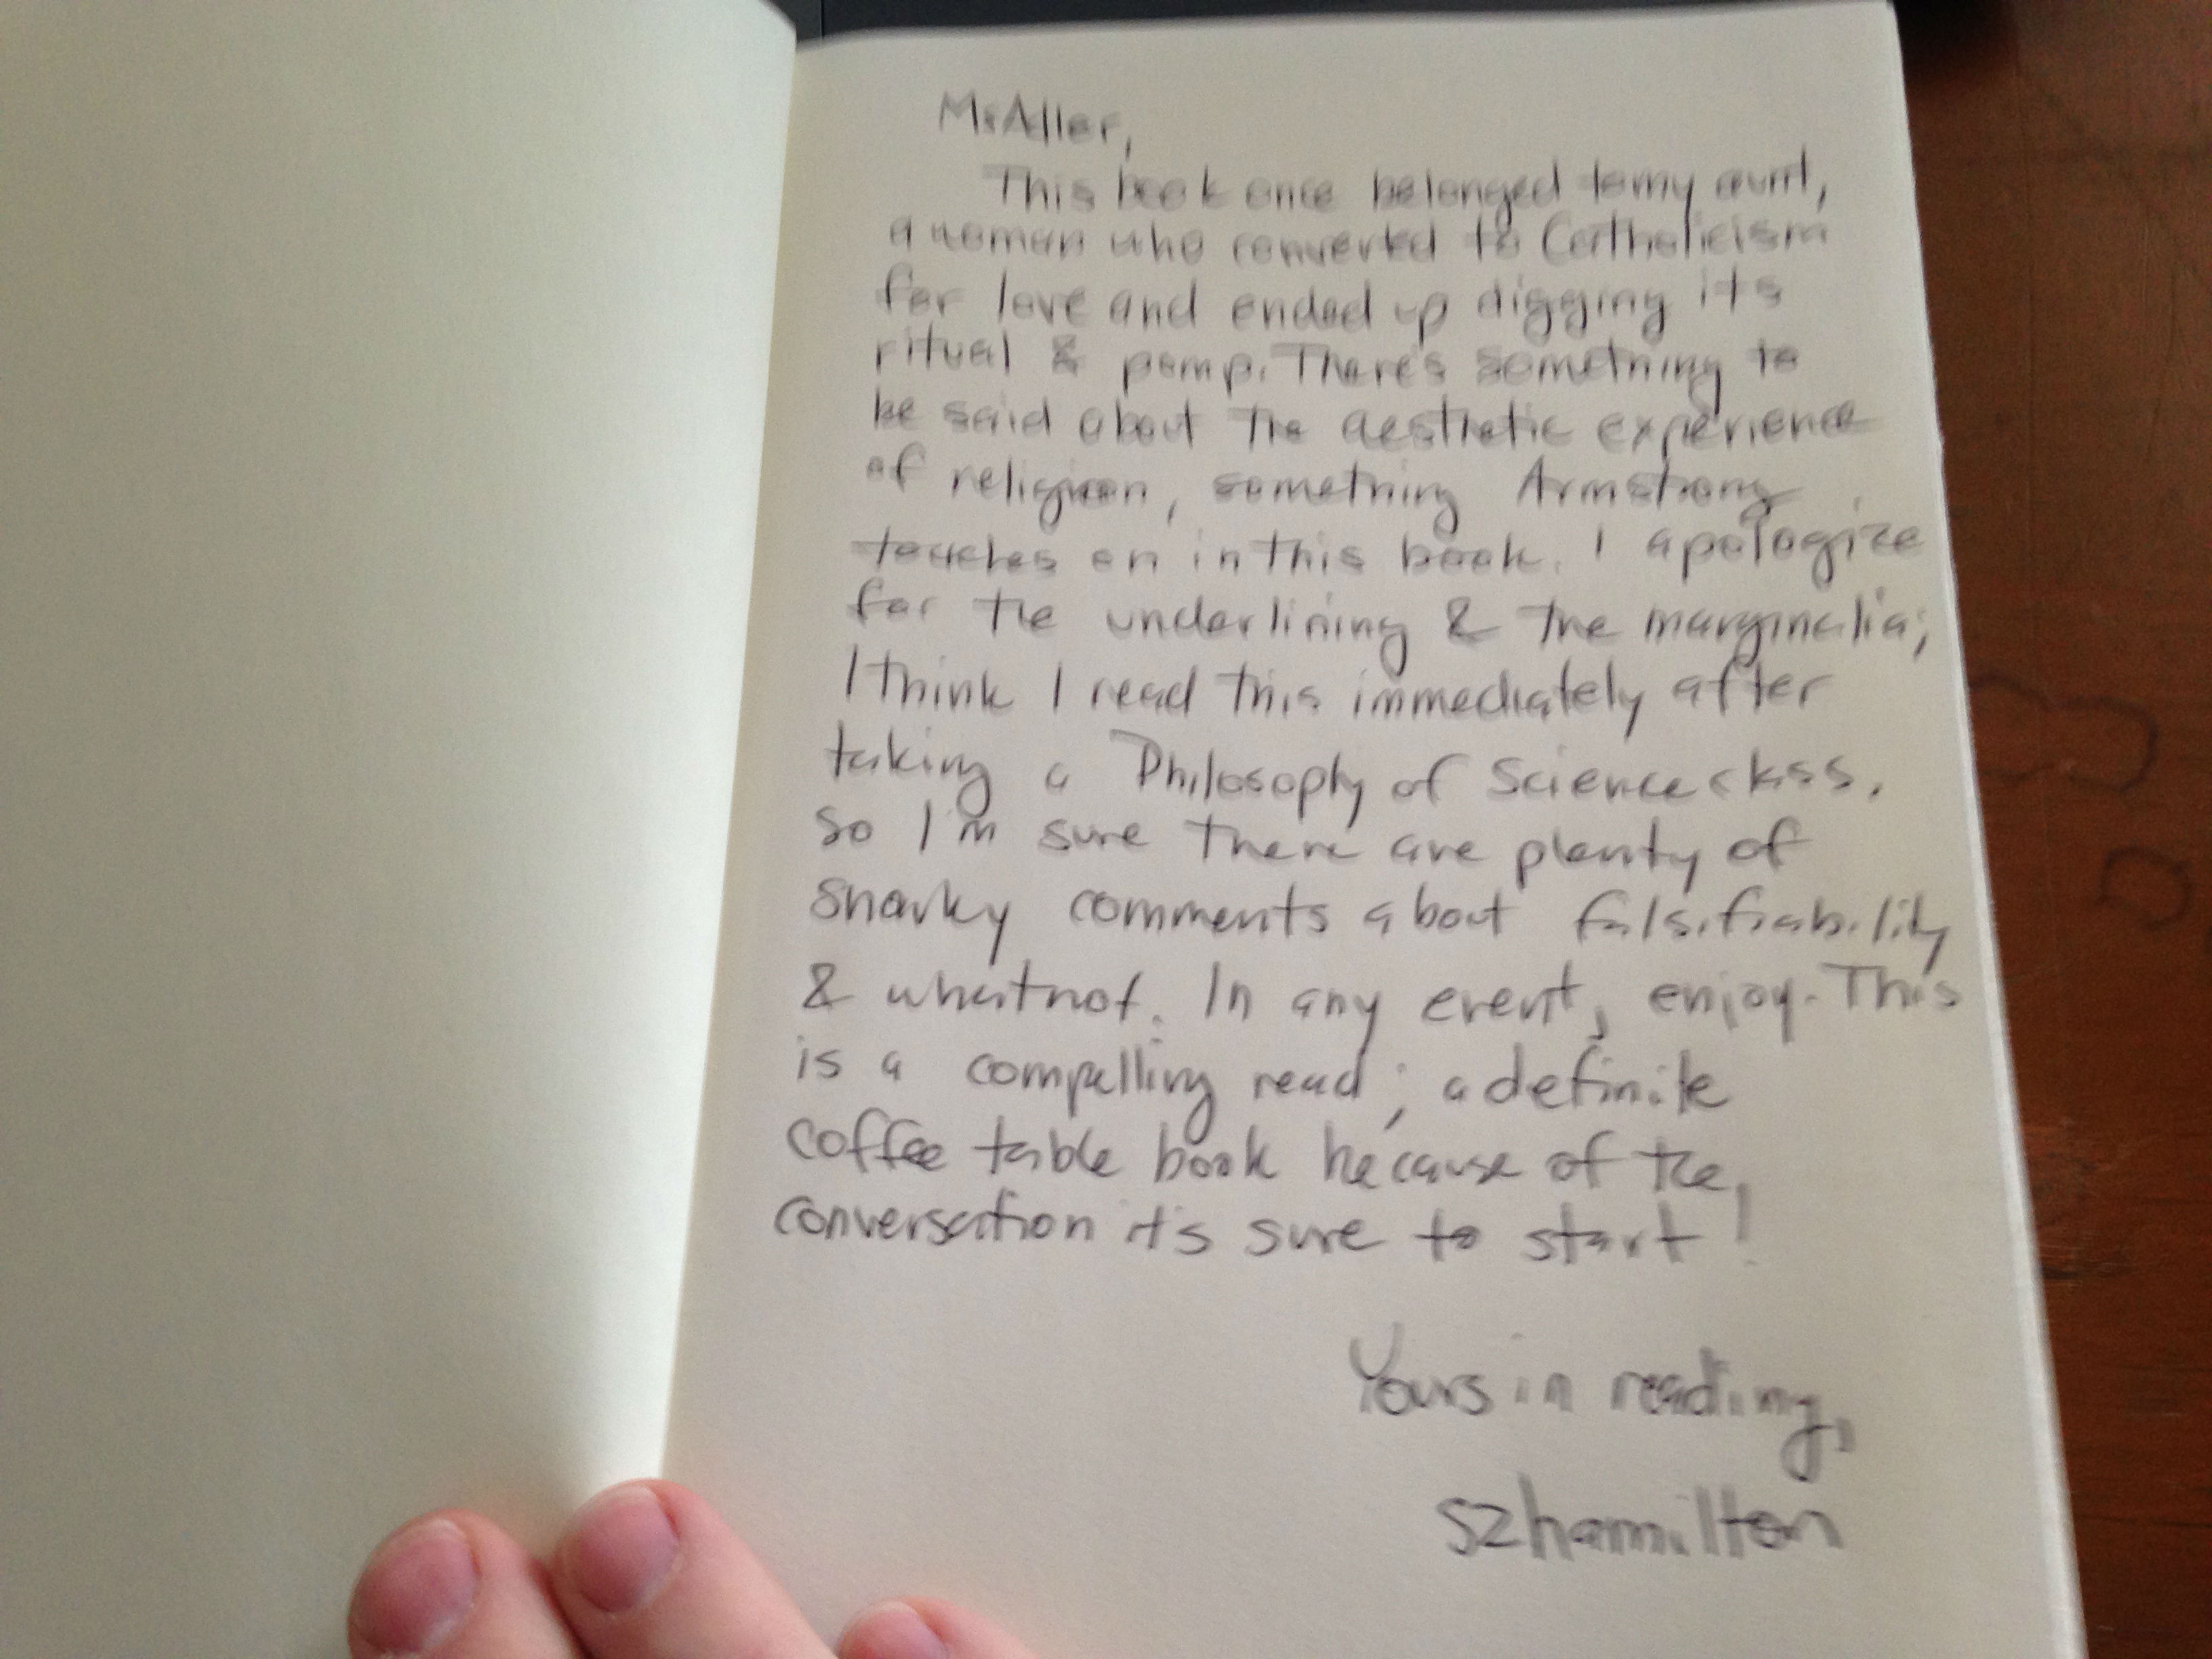 Mr Aller,
This book once belonged to my aunt,
a woman who converted to Catholicism
for love and ended up digging its
ritual & pomp. There's something to
be said about the aesthetic experience
of religion, something Armstrong
touches on in this book. I apologize
for the underlining & the marginalia;
I think I read this immediately after
taking a Philosophy of Science class,
so I'm sure there are plenty of
snarky comments about falsifiability
& whatnot. In any event, enjoy. This
is a compelling read; a definite
coffee table book because of the
conversation it's sure to start!
Yours in reading,
szhamilton